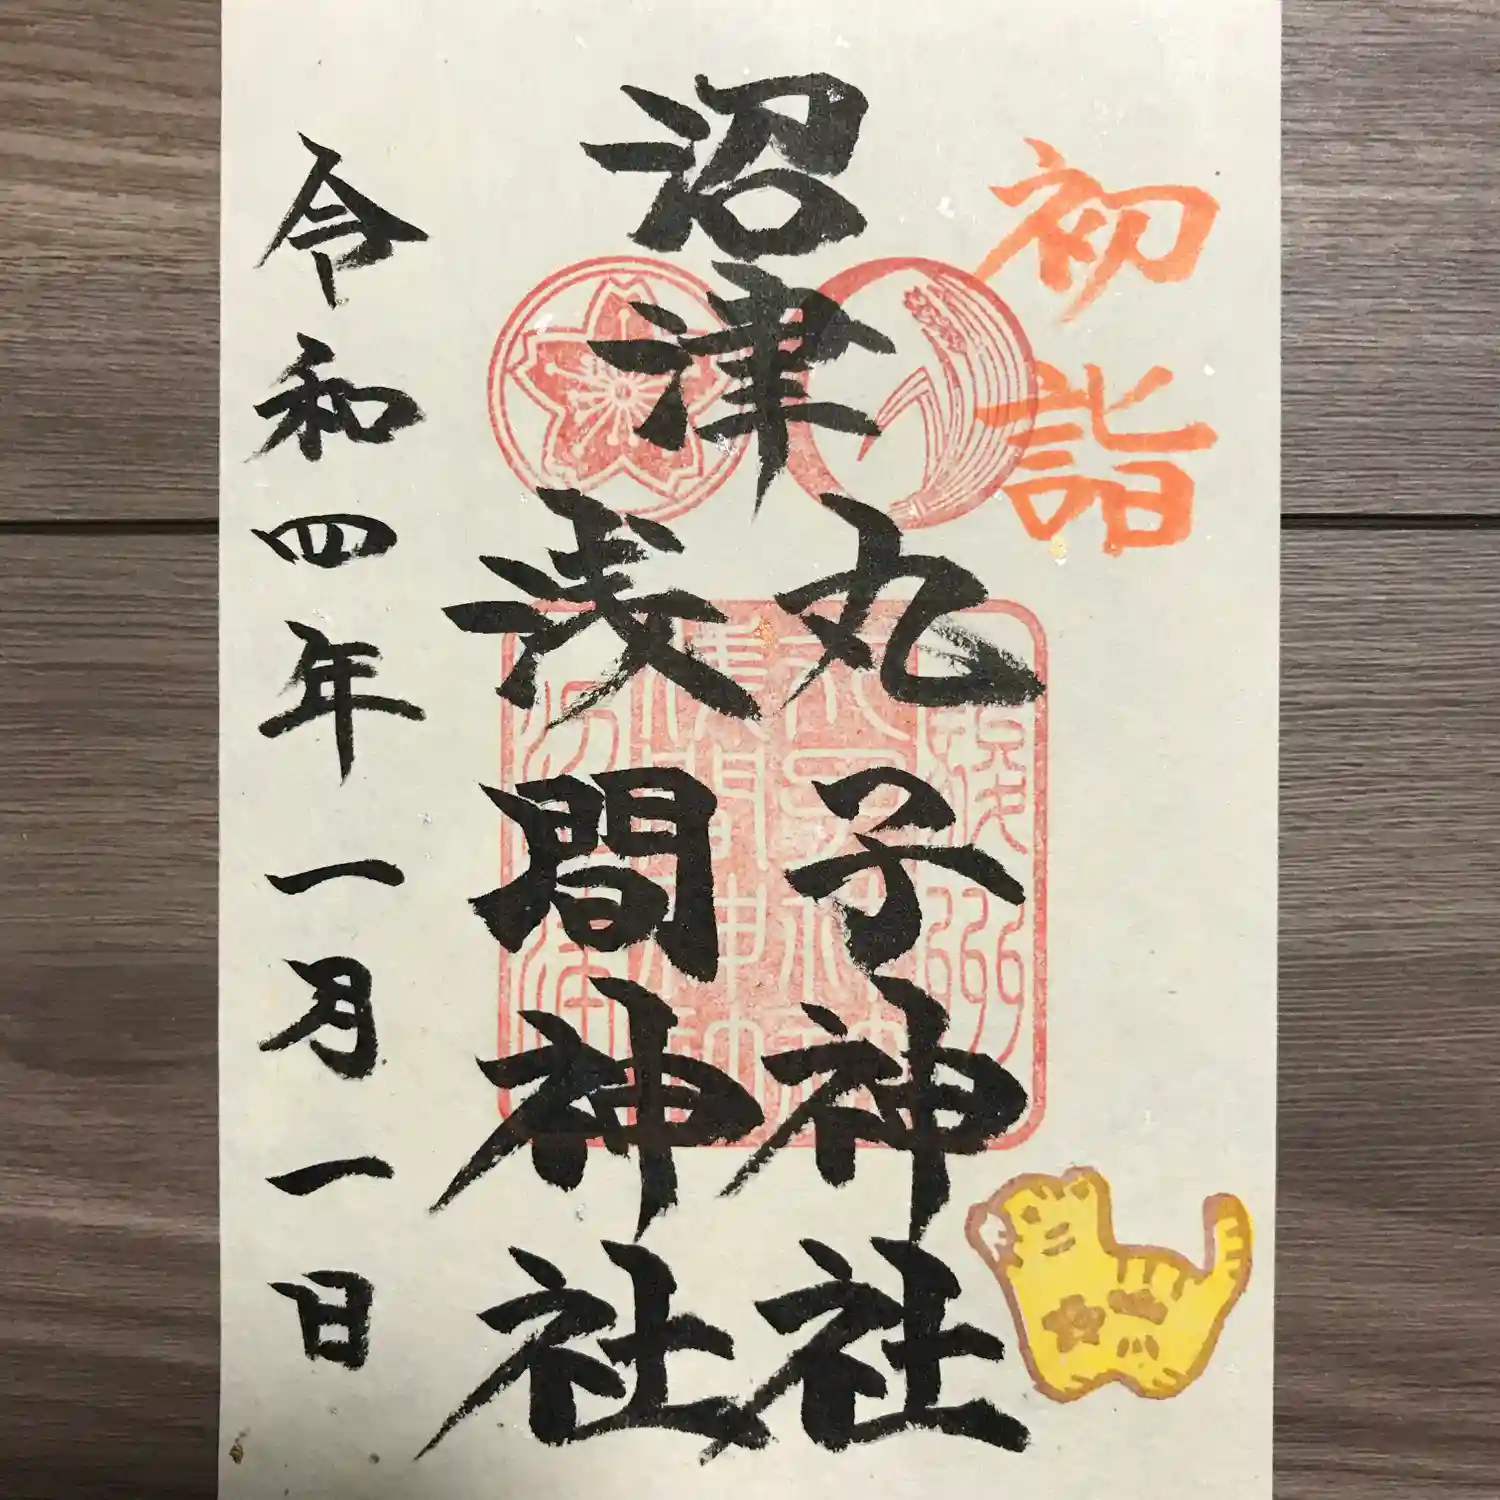 初詣
沼津
丸子神社
浅間神社
令和四年一月一日